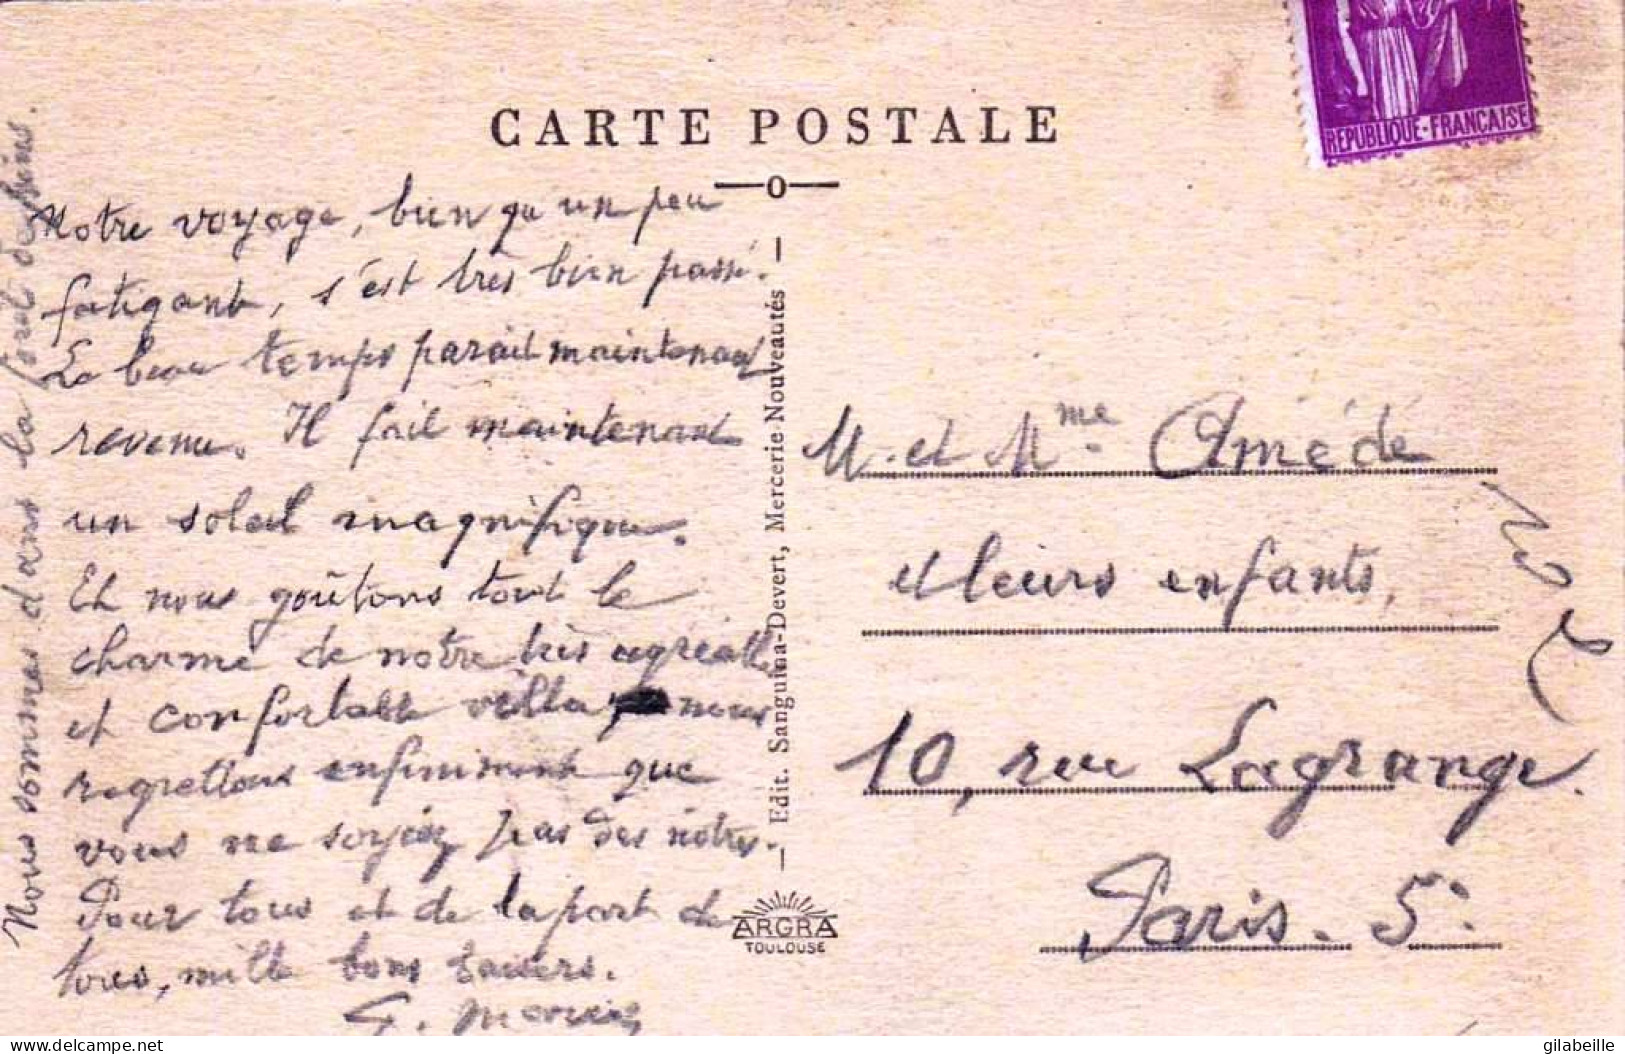 CARTE POSTALE
RÉPUBLIQUE-FRANÇAISE
Notre voyage, bien qu'un peu
fatigant, s'est très bien passé.
Le beau temps parait maintenant
revenu. Il fait maintenant
un soleil magnifique.
Et nous goûtons tout le
charme de notre très agréable
et confortable villa, nous
regrettons infiniment que
vous ne soyez pas des nôtres.
Pour tous et de la part de
tous, mille bons baisers.
Nous sommes dans la forêt de pins.
Edit. Sanguina-Devert, Mercerie-Nouveautés
ARGRA
TOULOUSE
M. et Mme Amédé
et leurs enfants,
10, rue Lagrange.
Paris. 5e
delcampe.net
gilabeille